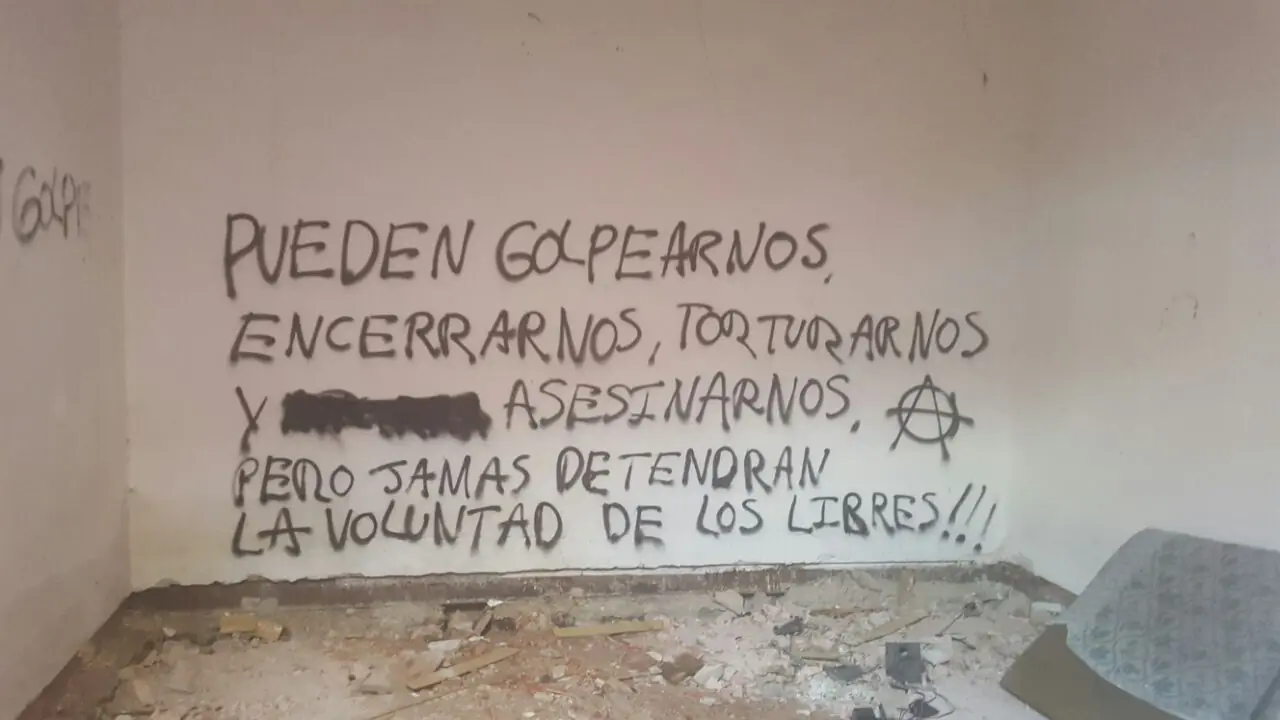 GOLP
PUEDEN GOLPEARNOS,
ENCERRARNOS, TORTURARNOS
Y ASESINARNOS. Ⓐ
PERO JAMAS DETENDRAN
LA VOLUNTAD DE LOS LIBRES!!!